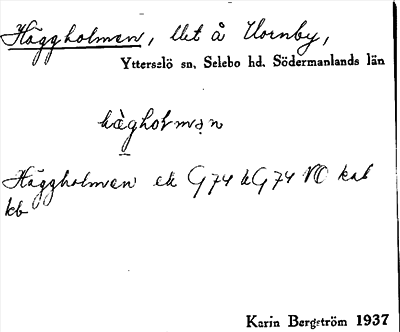 Häggholmen, llet å Hornby,
Ytterselö sn, Selebo hd. Södermanlands län
hàgholmən
Häggholmen ek G74 hG74 NO kal
kb
Karin Bergström 1937